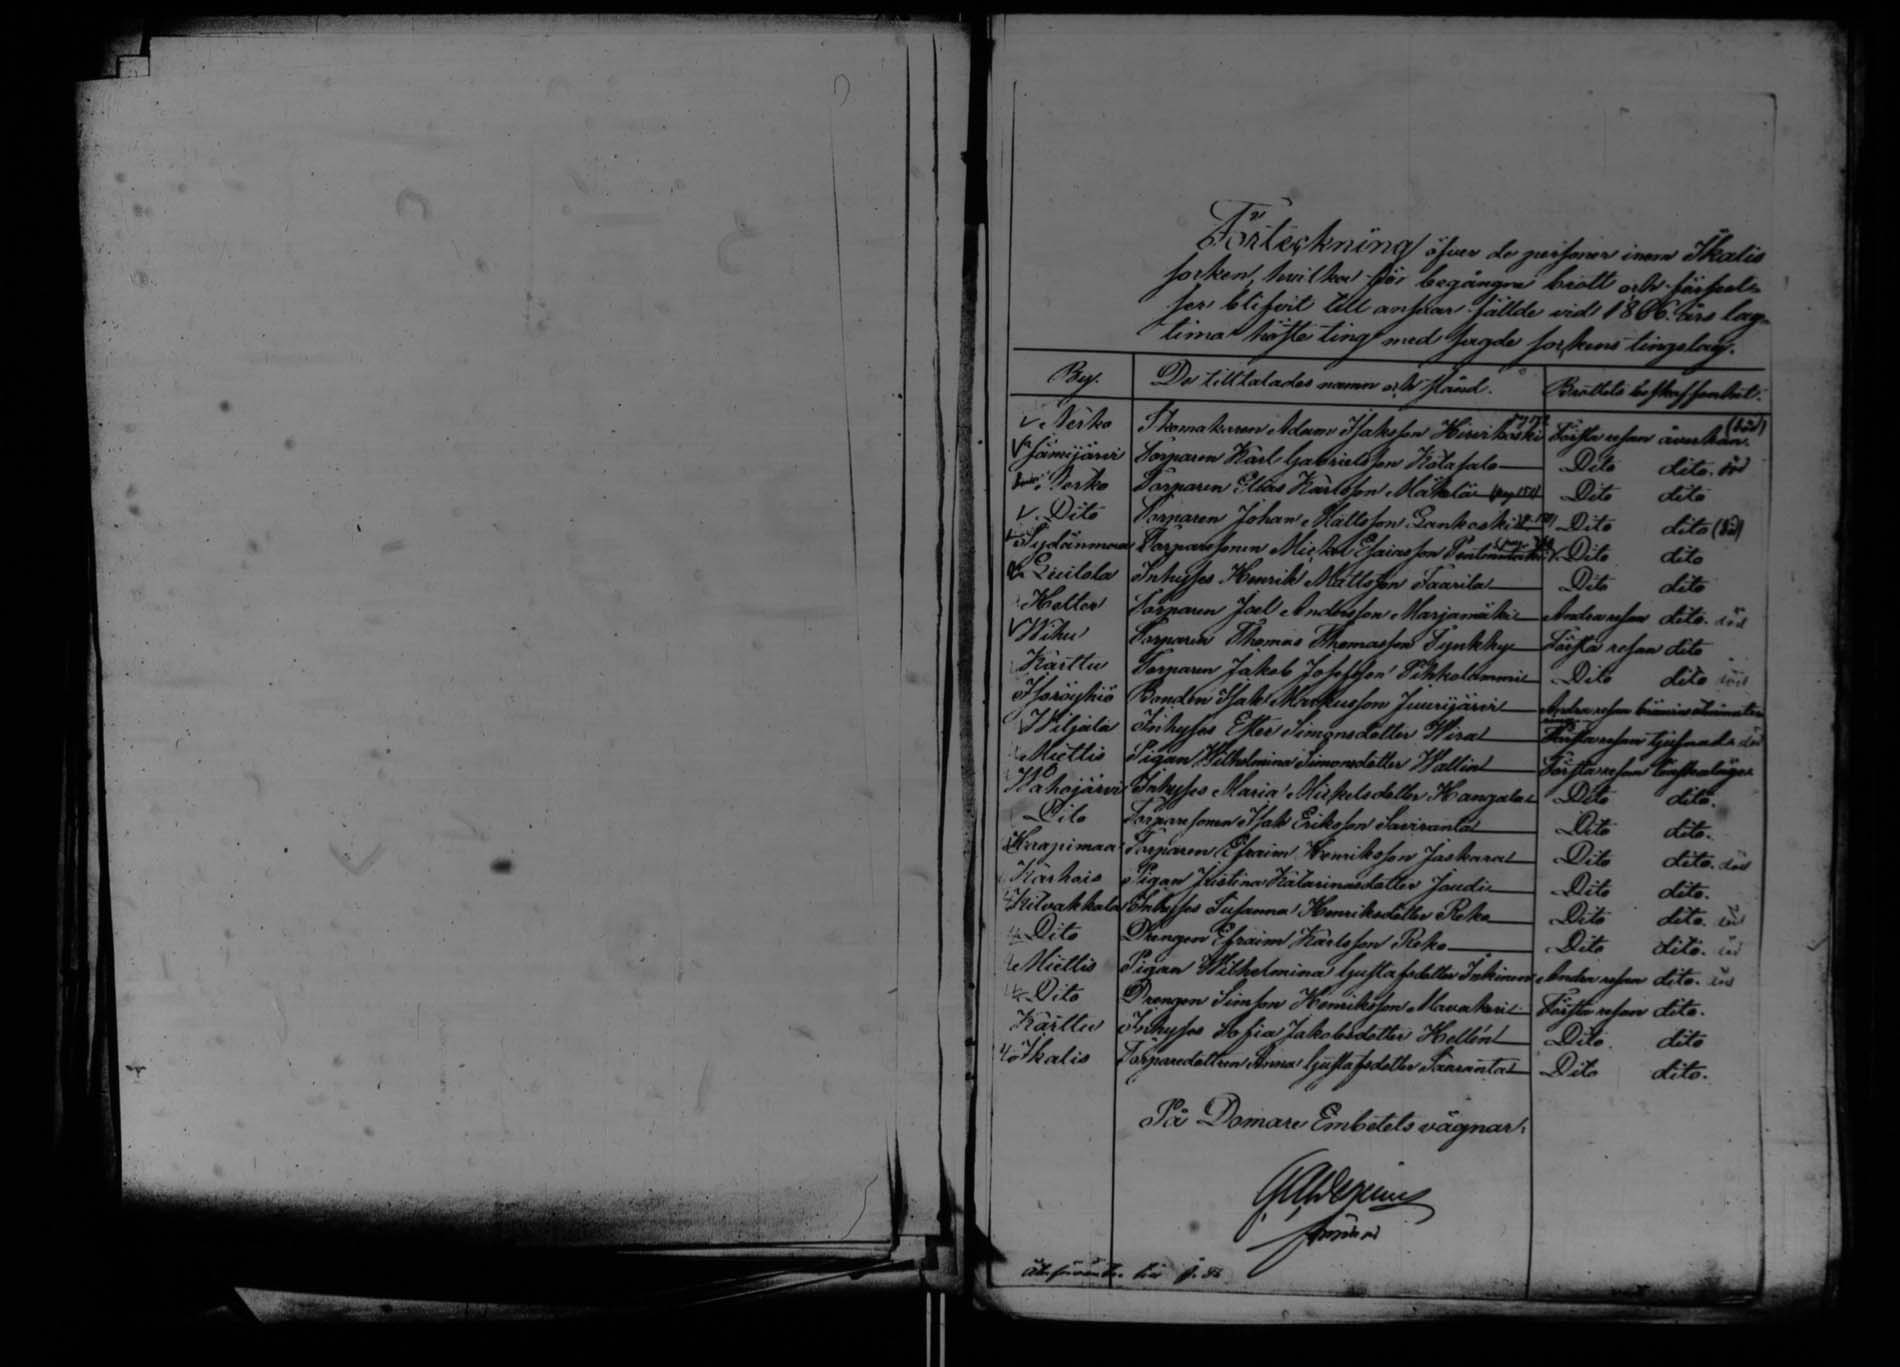 Förteckning öfver de personer inom Ikalis
socken, hvilka för begångna brott och förseel-
ser blifvit till ansvar fällde vid 1866 års lag-
tima höste ting med sagde sockens tingslag.
By. De tilltalades namn och stånd. Brottets beskaffenhet.
Nerko Skomakaren Adam Isaksson Hirvikoski Första resan åverkan. (död)
Jämijärvi Torparen Karl Gabrielsson Kotasalo Dito dito. död
Nerko Torparen Elias Karlsson Mäkelä Dito dito
Dito Torparen Johan Mattsson Dito dito (död)
Sydänmaa Torparesonen Mickel Esaiasson Dito dito
Luikala Inhyses Henrik Mattsson Taarila Dito dito
Kelter Torparen Joel Andersson Marjamäki Andra resan dito. död
Wihu Torparen Thomas Thomasson Tynkky Första resan dito
Karttu Torparen Jakob Josefsson Pihkolammi Dito dito död
Isoröyhiö Bonden Isak Markusson Juurijärvi Andra resan
Wiljala Inhyses Ester Simonsdotter Wira Första resan tjufnad. död
Miettis Pigan Wilhelmina Simonsdotter Wallin Första resan lönskaläge
Wahojärvi Inhyses Maria Mickelsdotter Kangalas Dito dito.
Dito Torparesonen Isak Eriksson Saviranta Dito dito.
Haapimaa Torparen Efraim Henriksson Jaskara Dito dito. död
Karhois Pigan Kristina Katarinasdotter Jaudi Dito dito.
Kilvakkala Inhyses Susanna Henriksdotter Reko Dito dito. död
Dito Drengen Efraim Karlsson Reko Dito dito. död
Miettis Pigan Wilhelmina Gustafsdotter Inkinen Andra resan dito. död
Dito Drengen Simson Henriksson Mavakeri Första resan dito.
Karttu Inhyses Sofia Jakobsdotter Hellén Dito dito
Ikalis Torparedottren Anna Gustafsdotter Saaranta Dito dito.
På Domare Embetets vägnar: